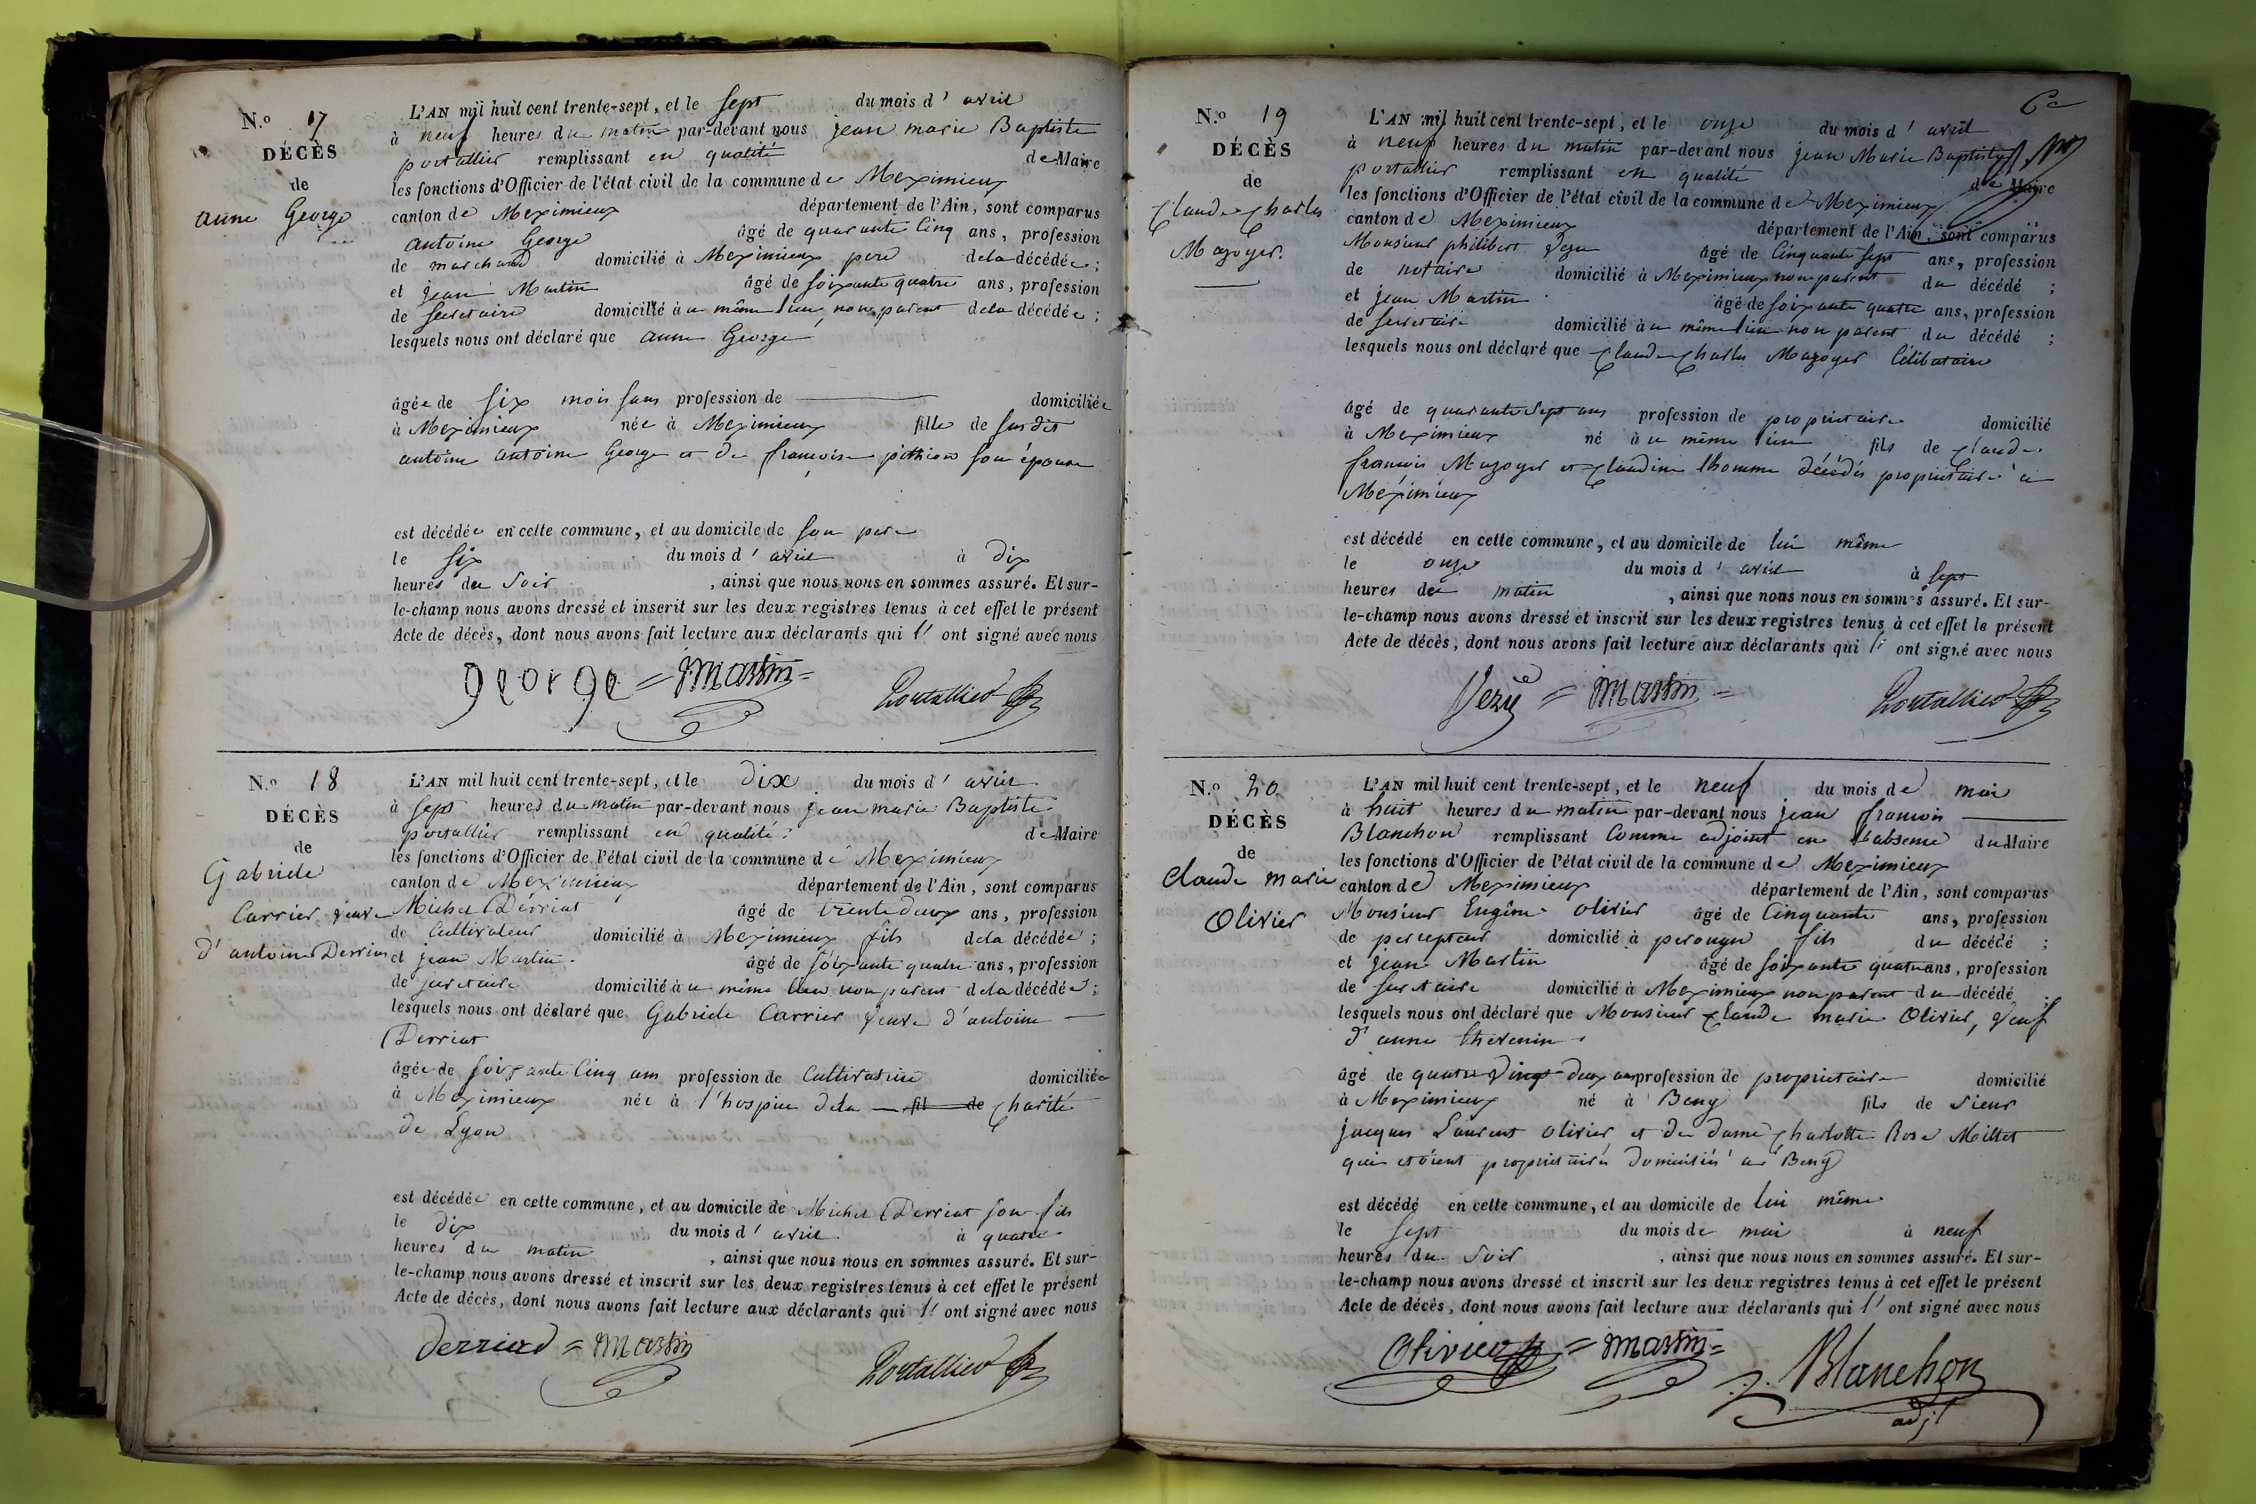 N.o 17
DÉCÈS
de
anne George
L'AN mil huit cent trente-sept, et le sept du mois d' avril
à neuf heures du matin par-devant nous jean marie Baptiste
portallier remplissant en qualité de Maire
les fonctions d'Officier de l'état civil de la commune de Meximieux
canton de Meximieux département de l'Ain, sont comparus
antoine George âgé de quarante Cinq ans, profession
de marchand domicilié à Meximieux pere dela décédée ;
et jean Martin âgé de soixante quatre ans, profession
de secretaire domicilié au même lieu, non parent dela décédée ;
lesquels nous ont déclaré que anne George
âgée de six mois sans profession de domiciliée
à Meximieux née à Meximieux fille de susdit
antoine antoine George et de francoise son épouse
est décédée en cette commune, et au domicile de son pere
le six du mois d' avril à dix
heures du soir, ainsi que nous nous en sommes assuré. Et sur-
le-champ nous avons dressé et inscrit sur les deux registres tenus à cet effet le présent
Acte de décès, dont nous avons fait lecture aux déclarants qui l' ont signé avec nous
george = jmartin = Portallier
N.o 18
DÉCÈS
de
Gabriele
Carrier veuve
d' antoine Derriat
L'AN mil huit cent trente-sept, et le dix du mois d' avril
à sept heures du matin par-devant nous jean marie Baptiste
portallier remplissant en qualité de Maire
les fonctions d'Officier de l'état civil de la commune de Meximieux
canton de Meximieux département de l'Ain, sont comparus
Michel Derriat âgé de trente deux ans, profession
de Cultivateur domicilié à Meximieux fils dela décédée ;
et jean Martin âgé de soixante quatre ans, profession
de secretaire domicilié au même lieu non parent dela décédée ;
lesquels nous ont déclaré que Gabriele Carrier veuve d'antoine
Derriat
âgée de soixante Cinq ans profession de Cultivatrice domiciliée
à Meximieux née à l'hospice dela fil de Charité
de Lyon
est décédée en cette commune, et au domicile de Michel Derriat son fils
le dix du mois d' avril à quatre
heures du matin, ainsi que nous nous en sommes assuré. Et sur-
le-champ nous avons dressé et inscrit sur les deux registres tenus à cet effet le présent
Acte de décès, dont nous avons fait lecture aux déclarants qui l' ont signé avec nous
derriard = jmartin Portallier
N.o 19
DÉCÈS
de
Claude Charles
Mazoyer.
L'AN mil huit cent trente-sept, et le onze du mois d' avril
à neuf heures du matin par-devant nous jean Marie Baptiste
portallier remplissant en qualité de Maire
les fonctions d'Officier de l'état civil de la commune de Meximieux
canton de Meximieux département de l'Ain, sont comparus
Monsieur philibert Vezu âgé de Cinquante sept ans, profession
de notaire domicilié à Meximieux non parent du décédé ;
et jean Martin âgé de soixante quatre ans, profession
de secretaire domicilié au même lieu non parent du décédé ;
lesquels nous ont déclaré que Claude Charles Mazoyer Célibataire
âgé de quarante sept ans profession de proprietaire domicilié
à Meximieux né au même lieu fils de Claude
francois Mazoyer et Claudine lhomme décédés proprietaire à
Meximieux
est décédé en cette commune, et au domicile de lui même
le onze du mois d' avril à sept
heures du matin, ainsi que nous nous en sommes assuré. Et sur-
le-champ nous avons dressé et inscrit sur les deux registres tenus à cet effet le présent
Acte de décès, dont nous avons fait lecture aux déclarants qui l' ont signé avec nous
Vezu = jmartin = Portallier
N.o 20
DÉCÈS
de
Claude marie
Olivier
L'AN mil huit cent trente-sept, et le neuf du mois de mai
à huit heures du matin par-devant nous jean francois
Blanchon remplissant Comme adjoint en l'absense du Maire
les fonctions d'Officier de l'état civil de la commune de Meximieux
canton de Meximieux département de l'Ain, sont comparus
Monsieur Eugène olivier âgé de Cinquante ans, profession
de percepteur domicilié à perouges fils du décédé ;
et jean Martin âgé de soixante quatre ans, profession
de secretaire domicilié à Meximieux non parent du décédé
lesquels nous ont déclaré que Monsieur Claude marie Olivier, veuf
d' anne thevenin
âgé de quatre vingt deux ans profession de proprietaire domicilié
à Meximieux né à Beny fils de sieur
jacques Laurent olivier et de dame Charlotte Rose Millet
qui etoient proprietaires domiciliés à Beny
est décédé en cette commune, et au domicile de lui même
le sept du mois de mai à neuf
heures du soir, ainsi que nous nous en sommes assuré. Et sur-
le-champ nous avons dressé et inscrit sur les deux registres tenus à cet effet le présent
Acte de décès, dont nous avons fait lecture aux déclarants qui l' ont signé avec nous
Olivier = jmartin = Blanchon
adjt